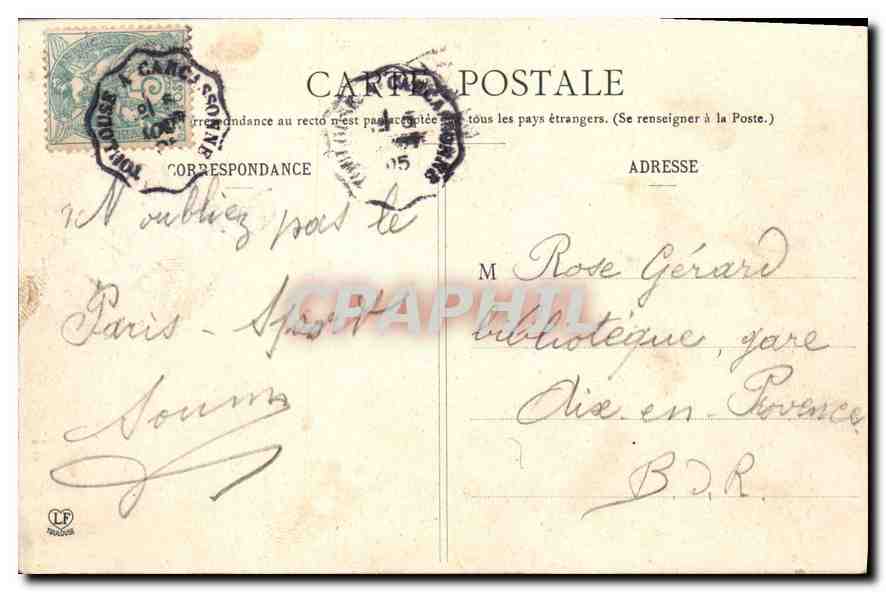 CARTE POSTALE
TOULOUSE A CARCASSONNE
rrespondance au recto n'est pas acceptée tous les pays étrangers. (Se renseigner à la Poste.)
CORRESPONDANCE
ADRESSE
N'oubliez pas le
Paris-Sport
M Rose Gérard
bibliotèque, gare
Aix-en-Provence
B.D.R.
CPAPHIL
LF
TOULOUSE